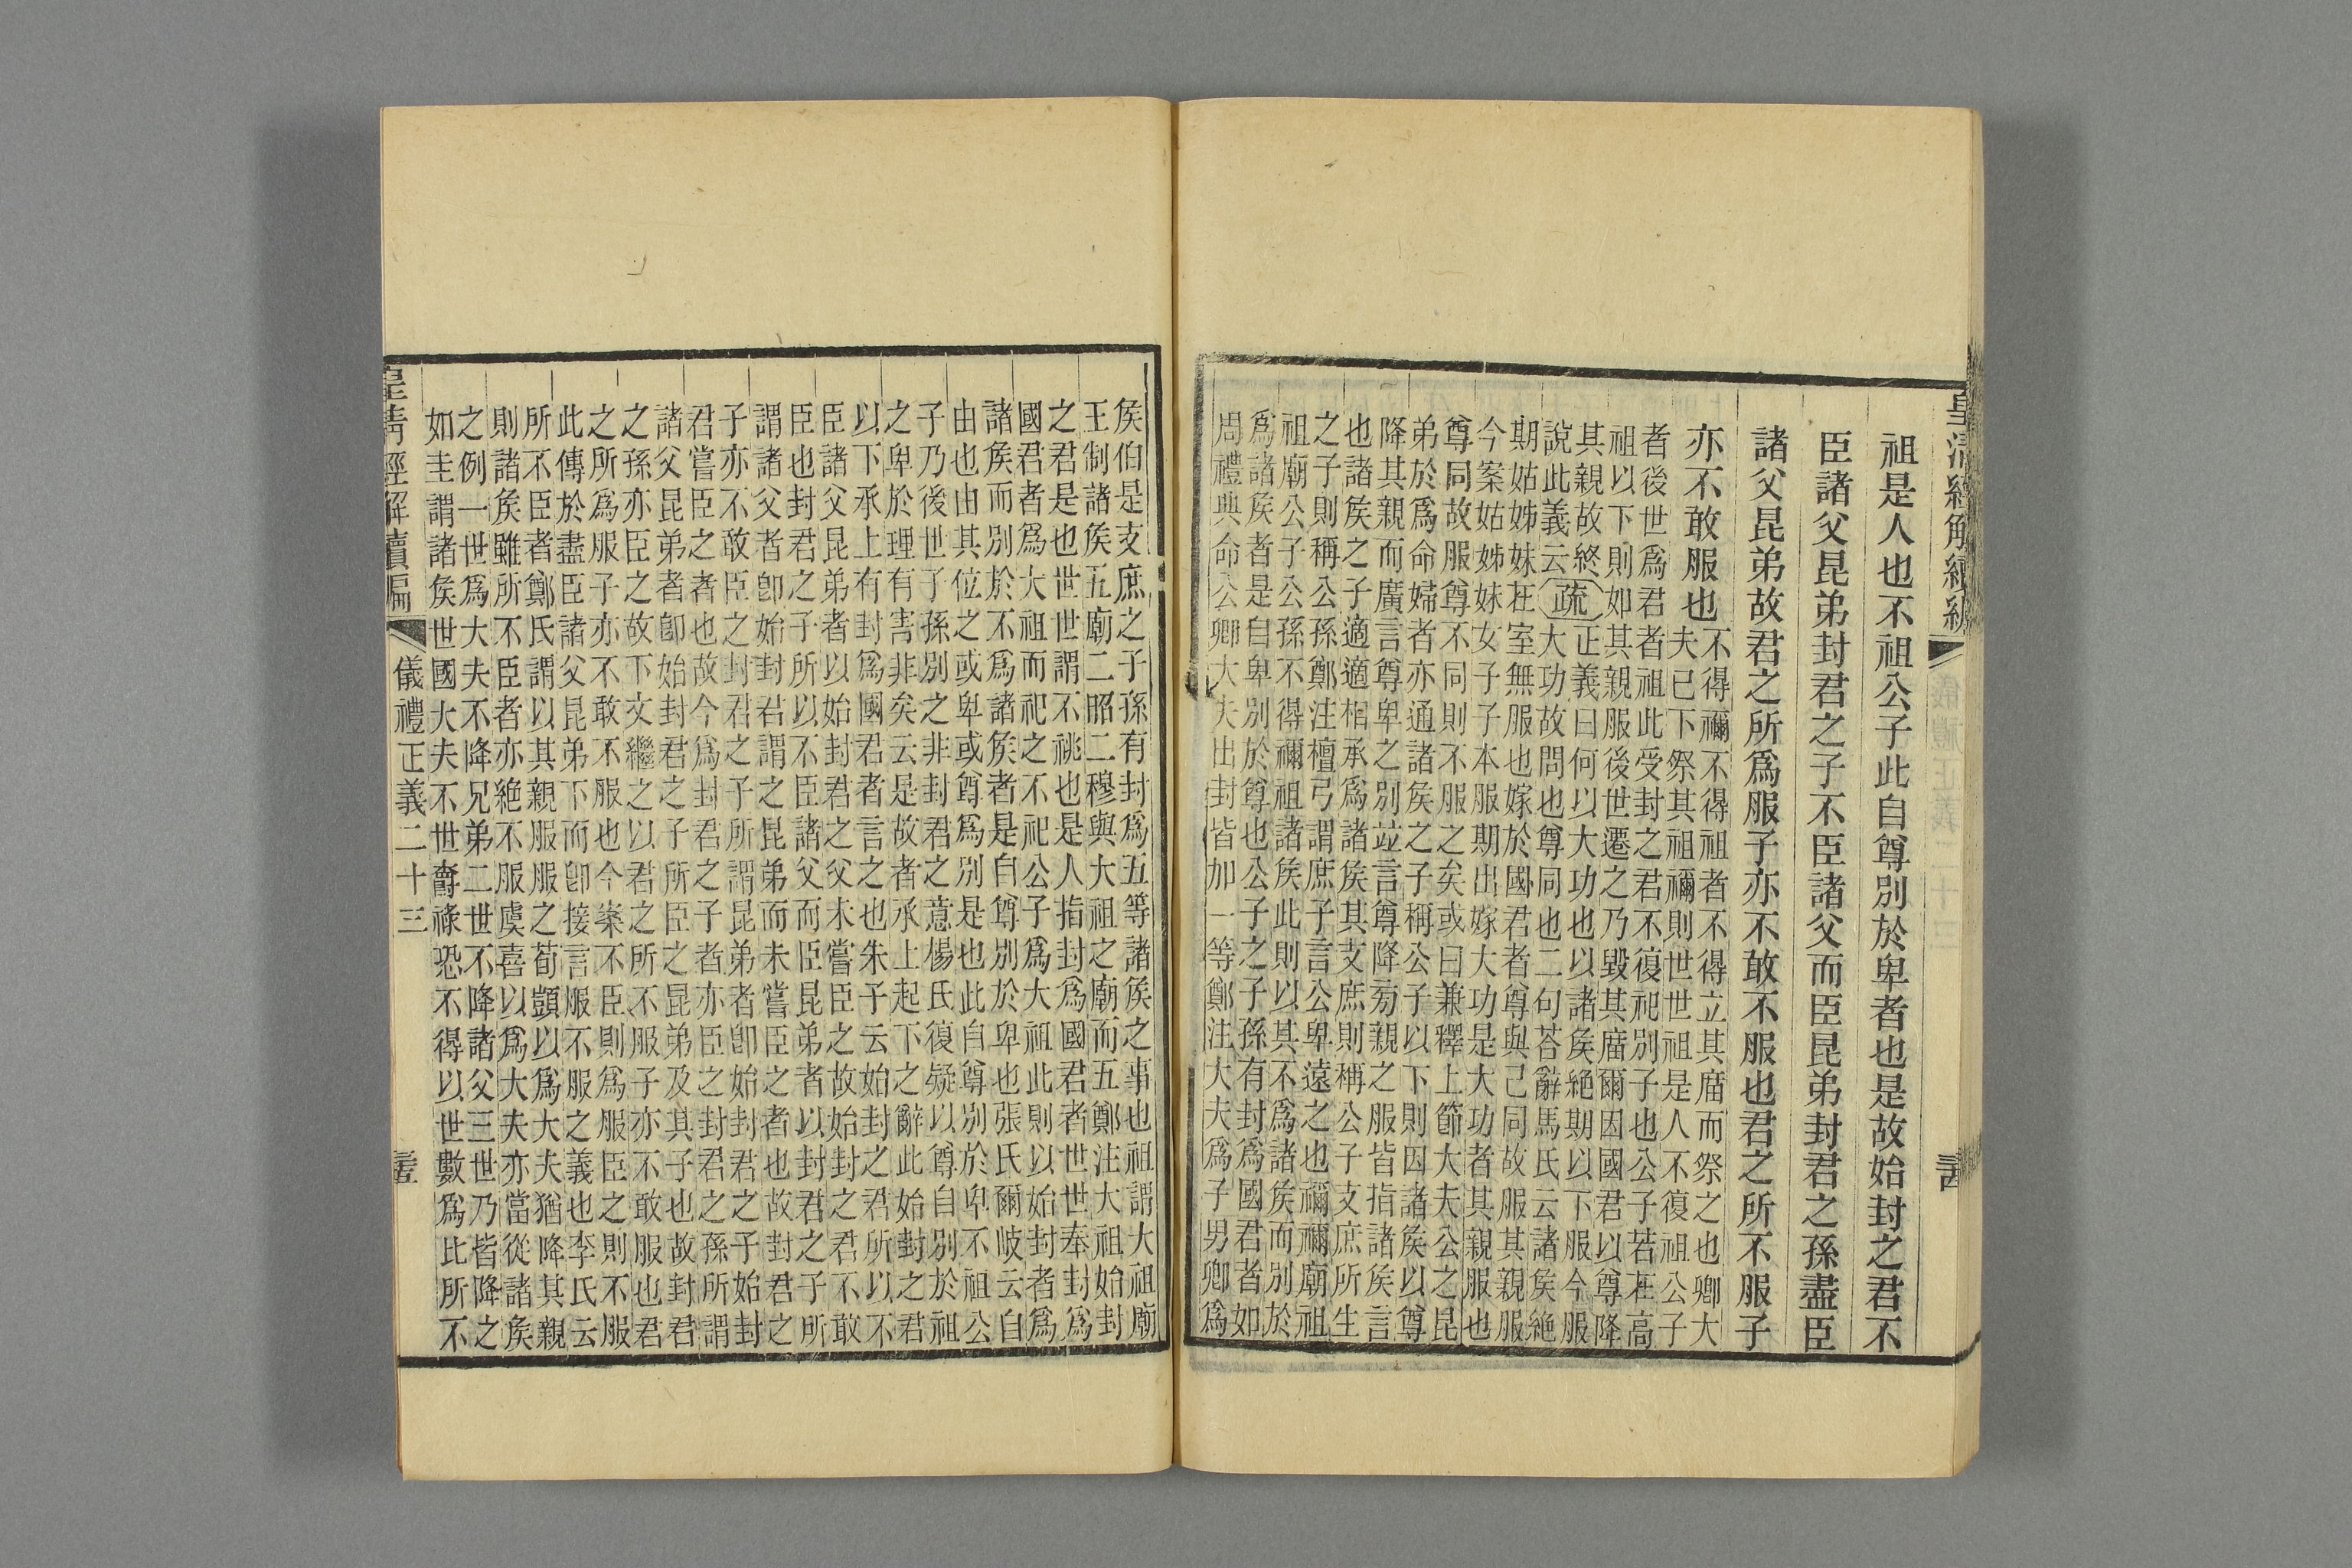 皇清經解續編
祖是人也不祖公子此自尊別於卑者也是故始封之君不
臣諸父昆弟封君之子不臣諸父而臣昆弟封君之孫盡臣
諸父昆弟故君之所爲服子亦不敢不服也君之所不服子
亦不敢服也
不得禰不得祖者不得立其廟而祭之也卿大
夫已下祭其祖禰則世世祖是人不復祖公子
者後世爲君者祖此受封之君不復祀別子也公子若在高
祖以下則如其親服後世遷之乃毀其廟爾因國君以尊降
其親故終
說此義云
疏
正義曰何以大功也以諸矦絕期以下服今服
大功故問也尊同也二句荅辭馬氏云諸矦絕
期姑姊妹在室無服也嫁於國君者尊與己同故服其親服
今案姑姊妹女子子本服期出嫁大功是大功者其親服也
尊同故服尊不同則不服之矣或曰兼釋上節大夫公之昆
弟於爲命婦者亦通諸矦之子稱公子以下則因諸矦以尊
降其親而廣言尊卑之別竝言尊降菊親之服皆指諸矦言
也諸矦之子適適相承爲諸矦其支庶則稱公子支庶所生
之子則稱公孫鄭注檀弓謂庶子言公卑遠之也禰禰廟祖
祖廟公子公孫不得禰祖諸矦此則以其不爲諸矦而別於
爲諸矦者是自卑別於尊也公子之子孫有封爲國君者如
周禮典命公卿大夫出封皆加一等鄭注大夫爲子男卿爲
矦伯是支庶之子孫有封爲五等諸矦之事也祖謂大祖廟
王制諸矦五廟二昭二穆與大祖之廟而五鄭注大祖始封
之君是也世世謂不祧也是人指封爲國君者世世奉封爲
國君者爲大祖而祀之不祀公子爲大祖此則以始封者爲
諸矦而別於不爲諸矦者是自尊別於卑也張氏爾岐云自
由也由其位之或卑或尊爲別是也此自尊別於卑不祖公
子乃後世子孫別之非封君之意楊氏復疑以尊自別於祖
之卑於理有害非矣云是故者承上起下之辭此始封之君
以下承上有封爲國君者言之也朱子云始封之君所以不
臣諸父昆弟者以始封君之父未嘗臣之故始封之君不敢
臣也封君之子所以不臣諸父而臣昆弟者以封君之子所
謂諸父者卽始封君謂之昆弟而未嘗臣之者也故封君之
子亦不敢臣之封君之子所謂昆弟者卽始封君之子始封
君嘗臣之者也故今爲封君之子者亦臣之封君之孫所謂
諸父昆弟者卽始封君之子所臣之昆弟及其子也故封君
之孫亦臣之故下文繼之以君之所不服子亦不敢服也君
之所爲服子亦不敢不服也今案不臣則爲服臣之則不服
此傳於盡臣諸父昆弟下而卽接言服不服之義也李氏云
所不臣者鄭氏謂以其親服服之荀顗以爲大夫猶降其親
則諸矦雖所不臣者亦絕不服虞喜以爲大夫亦當從諸矦
之例一世爲大夫不降兄弟二世不降諸父三世乃皆降之
如圭謂諸矦世國大夫不世爵祿恐不得以世數爲比所不
皇清經解續編
儀禮正義二十三